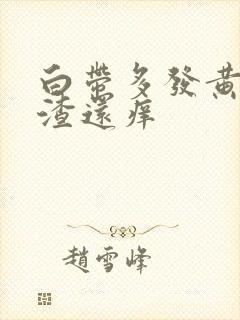 白帶多發黃
渣還痒
趙雪峰